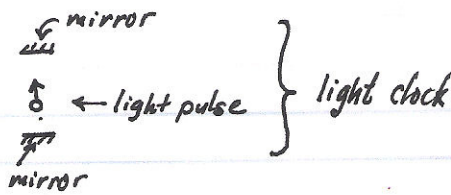 mirror
light pulse
light clock
mirror